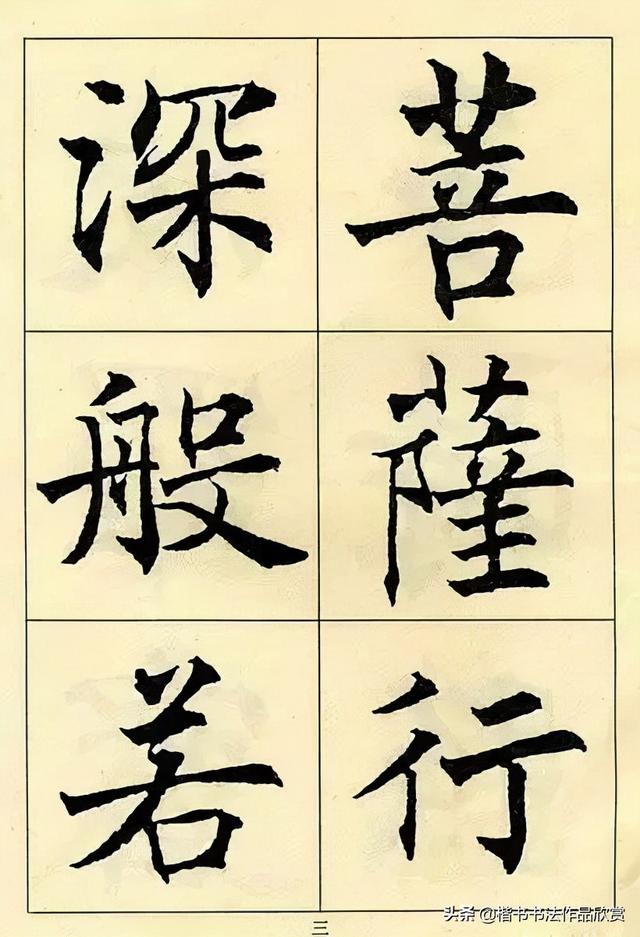 菩薩行
深般若
三
头条 @楷书书法作品欣赏